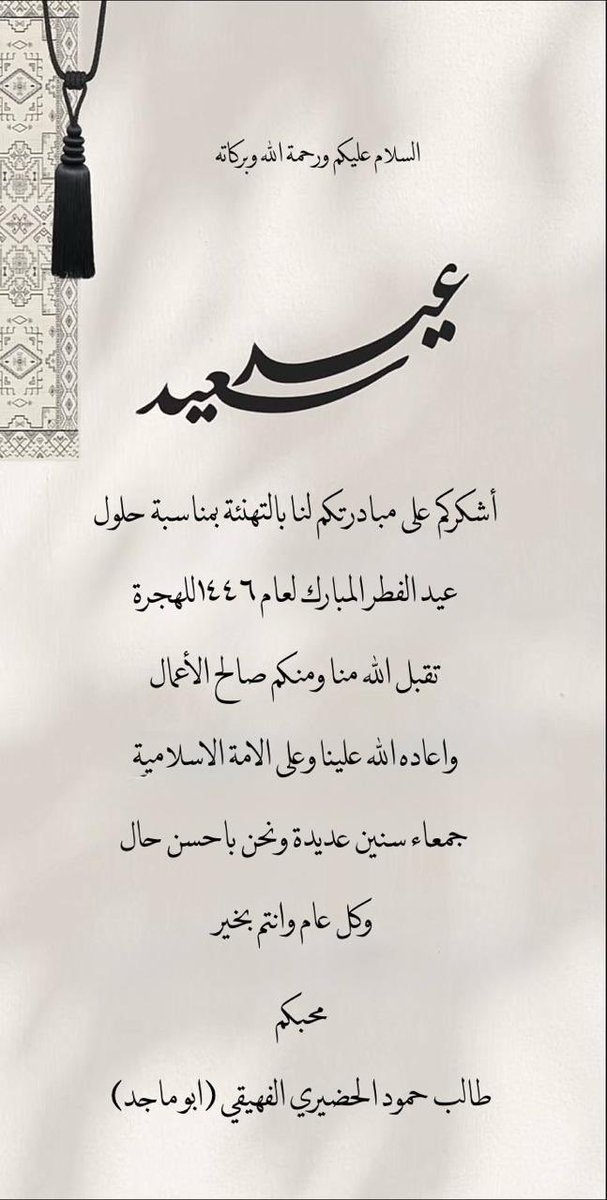 السلام عليكم ورحمة الله وبركاته
عيد سعيد
أشكركم على مبادرتكم لنا بالتهنئة بمناسبة حلول
عيد الفطر المبارك لعام ١٤٤٦للهجرة
تقبل الله منا ومنكم صالح الأعمال
واعاده الله علينا وعلى الامة الاسلامية
جمعاء سنين عديدة ونحن باحسن حال
وكل عام وانتم بخير
محبكم
طالب حمود الحضيري الفهيقي (ابو ماجد)